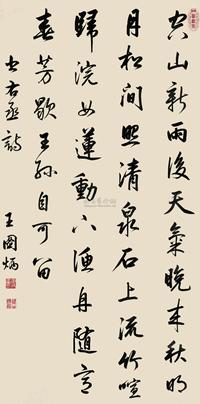 空山新雨後天氣晚來秋明
月松間照清泉石上流竹喧
歸浣女蓮動下漁舟隨意
春芳歇王孫自可留
書右丞詩
王圖炳